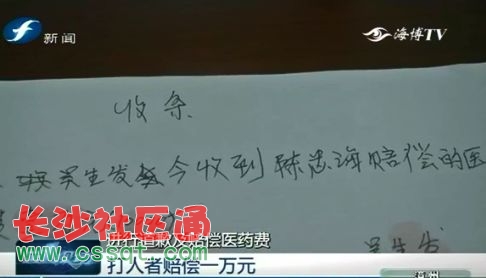 新闻
海博TV
收条
吴生发今收到陈志海赔偿的医
长沙社区通
www.cssqt.com
进行道歉及赔偿医药费
打人者赔偿一万元
吴生发